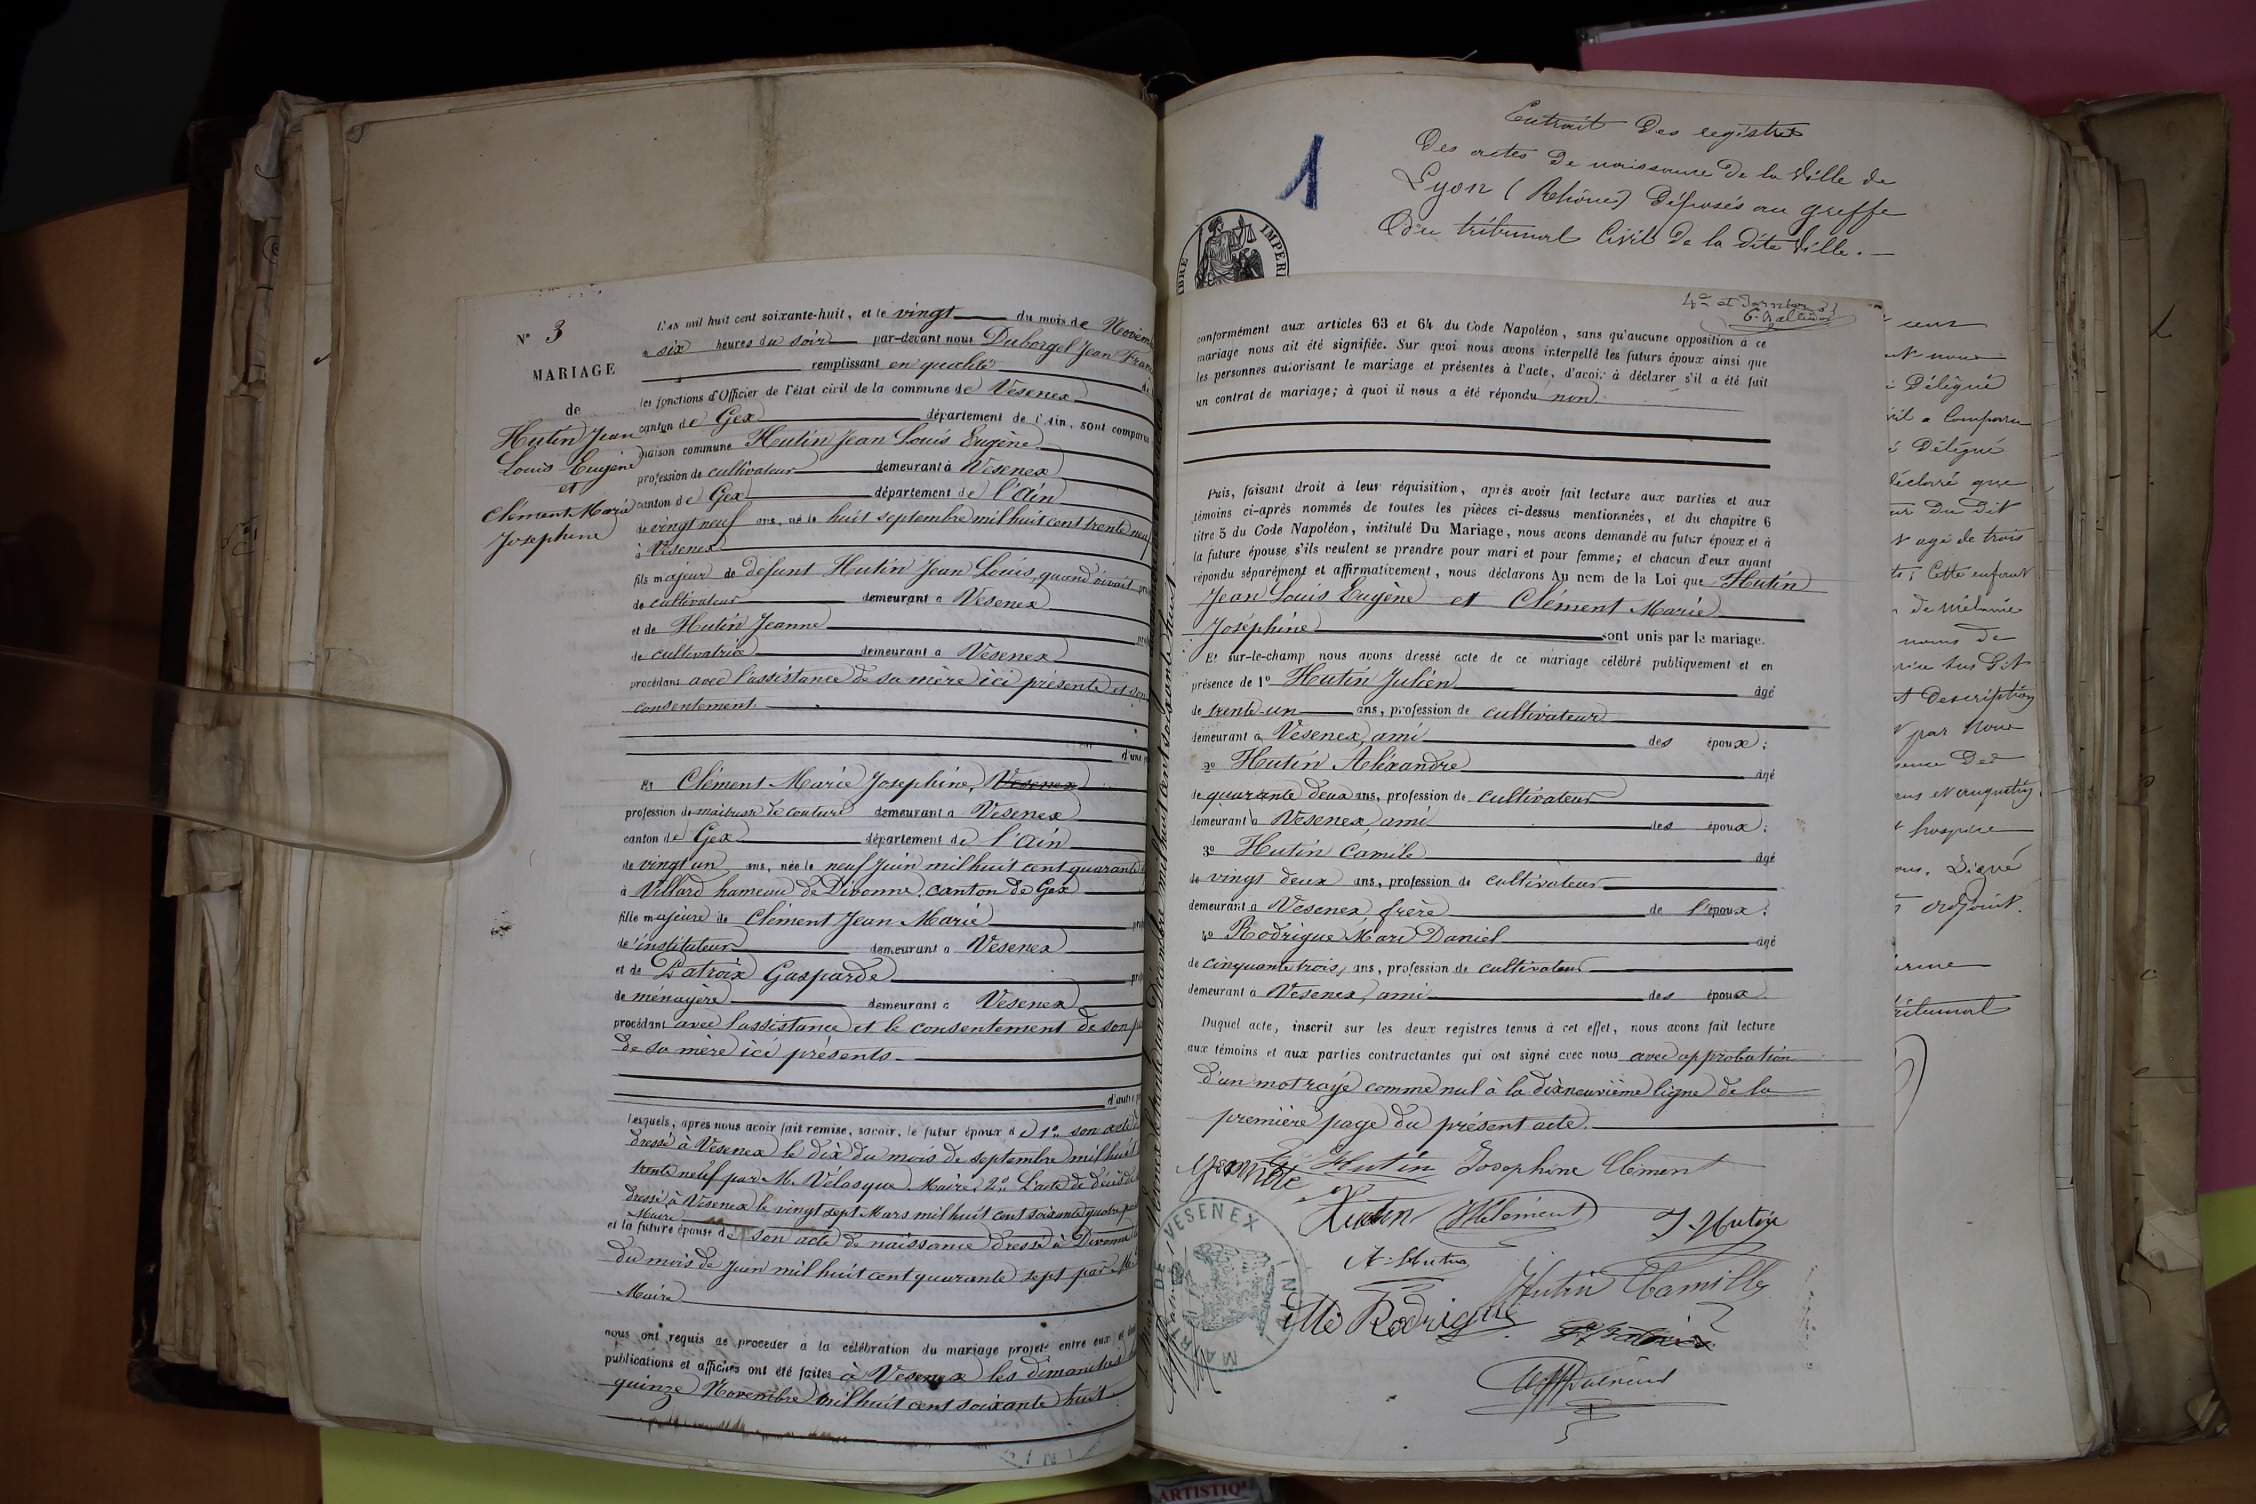 N° 3
MARIAGE
de
Hutin Jean
Louis Eugène
et
Clément Marie
Josephine
L'an mil huit cent soixante-huit, et le vingt du mois de Novem
à six heures du soir par-devant nous Duborgel Jean Fran
remplissant en qualité
les fonctions d'Officier de l'état civil de la commune de Vesenex
canton de Gex département de l'Ain, sont comparus
maison commune Hutin Jean Louis Eugène
profession de cultivateur demeurant à Vesenex
canton de Gex département de l'Ain
de vingt neuf ans, né le huit septembre mil huit cent trente neuf
à Vesenex
fils majeur de defunt Hutin Jean Louis, quand vivait
de cultivateur demeurant à Vesenex
et de Hutin Jeanne
de cultivatrice demeurant à Vesenex
procédant avec l'assistance de sa mère ici présente et son
consentement
d'une
Et Clément Marie Josephine, Vesenex
profession de maitresse de couture demeurant à Vesenex
canton de Gex département de l'Ain
de vingt un ans, née le neuf Juin mil huit cent quarante
à Villard hameau de Divonne, canton de Gex
fille majeure de Clément Jean Marie
de instituteur demeurant à Vesenex
et de Latroix Gasparde
de ménagère demeurant à Vesenex
procédant avec l'assistance et le consentement de son
de sa mère ici présents
d'autre
Lesquels, après nous avoir fait remise, savoir, le futur époux de 1° son acte
dressé à Vesenex le dix du mois de septembre mil huit
trente neuf par M. Vélasque Maire, 2° L'acte de décès de
dressé à Vesenex le vingt sept Mars mil huit cent soixante quatre
Maire
et la future épouse de son acte de naissance dressé à Divonne
du mois de Juin mil huit cent quarante sept par M
Maire
nous ont requis de procéder à la célébration du mariage projeté entre eux et
publications et affiches ont été faites à Vesenex les dimanches
quinze Novembre mil huit cent soixante huit
1
Extrait des registres
Des actes de naissance de la Ville de
Lyon (Rhône) Déposés au greffe
Du tribunal Civil de la dite Ville.
IMPERI
4e et dernier
conformément aux articles 63 et 64 du Code Napoléon, sans qu'aucune opposition à ce
mariage nous ait été signifiée. Sur quoi nous avons interpellé les futurs époux ainsi que
les personnes autorisant le mariage et présentes à l'acte, d'avoir à déclarer s'il a été fait
un contrat de mariage; à quoi il nous a été répondu non.
Puis, faisant droit à leur réquisition, après avoir fait lecture aux parties et aux
témoins ci-après nommés de toutes les pièces ci-dessus mentionnées, et du chapitre 6
titre 5 du Code Napoléon, intitulé Du Mariage, nous avons demandé au futur époux et à
la future épouse s'ils veulent se prendre pour mari et pour femme; et chacun d'eux ayant
répondu séparément et affirmativement, nous déclarons Au nom de la Loi que Hutin
Jean Louis Eugène et Clément Marie
Joséphine sont unis par le mariage.
Et sur-le-champ nous avons dressé acte de ce mariage célébré publiquement et en
présence de 1° Hutin Julien âgé
de trente-un ans, profession de cultivateur
demeurant à Vesenex, ami des époux;
2° Hutin Alexandre âgé
de quarante deux ans, profession de cultivateur
demeurant à Vesenex, ami des époux;
3° Hutin Camile âgé
de vingt deux ans, profession de cultivateur
demeurant à Vesenex, frère de l'époux;
4° Rodrigue Marc Daniel âgé
de cinquante trois, ans, profession de cultivateur
demeurant à Vesenex, ami des époux.
Duquel acte, inscrit sur les deux registres tenus à cet effet, nous avons fait lecture
aux témoins et aux parties contractantes qui ont signé avec nous avec approbation
d'un mot rayé comme nul à la dixneuvième ligne de la
première page du présent acte.
Hutin Josephine Clément
Hutin Clément J. Hutin
A. Hutin
Hutin Camille
Rodrigue
MAIRIE DE VESENEX (AIN)
Délégué
a Comparu
Délégué
déclaré que
du Dit
agé de trois
Cette enfant
de Mélanie
noms de
Description
par Nous
hospice
Signé
adjoint.
tribunal
ARTISTIQ